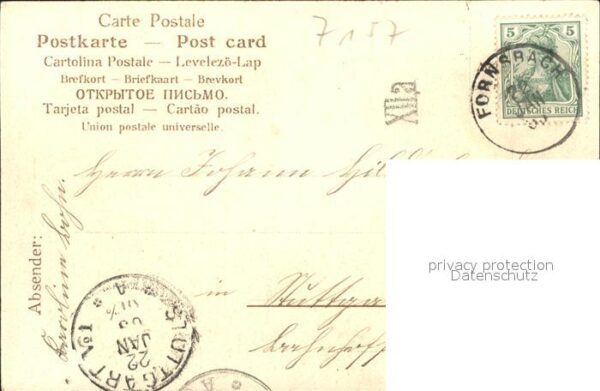 Carte Postale
Postkarte — Post card
Cartolina Postale — Levelező-Lap
Brefkort — Briefkaart — Brevkort
ОТКРЫТОЕ ПИСЬМО.
Tarjeta postal — Cartão postal.
Union postale universelle.
7157
5 5
DEUTSCHES REICH
FORNSBACH
22
JAN
Herrn Johann
in Stuttga
Bahnhof
Absender:
Karoline Bohn.
STUTTGART No 1
22
JAN
A
privacy protection
Datenschutz